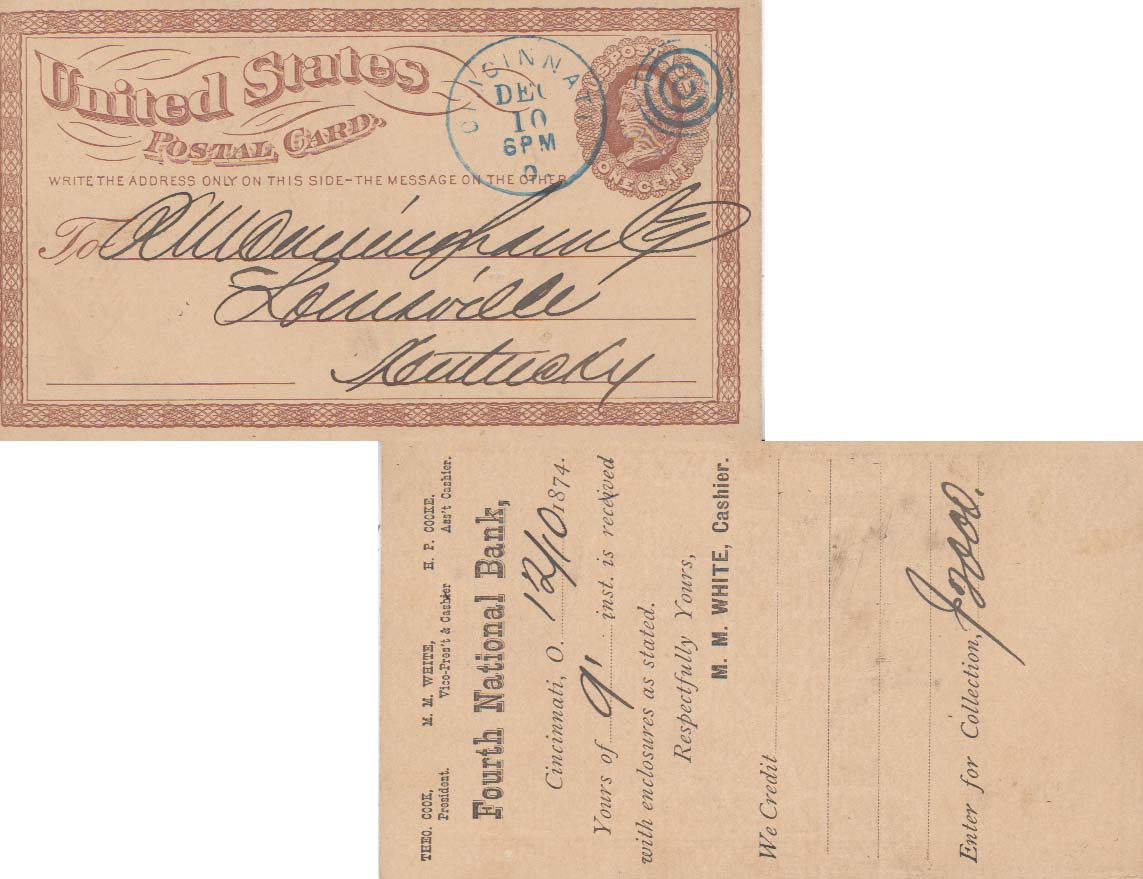 United States
POSTAL CARD.
WRITE THE ADDRESS ONLY ON THIS SIDE-THE MESSAGE ON THE OTHER
CINCINNATI
DEC
10
6PM
O.
U.S. POSTAGE
ONE CENT
To Cunningham Co
Louisville
Kentucky
THEO. COOK, M. M. WHITE, H. P. COOKE,
President. Vice-Pres't & Cashier Ass't Cashier.
Fourth National Bank,
Cincinnati, O. 12/10 1874.
Yours of 9' inst. is received
with enclosures as stated.
Respectfully Yours,
M. M. WHITE, Cashier.
We Credit
Enter for Collection,